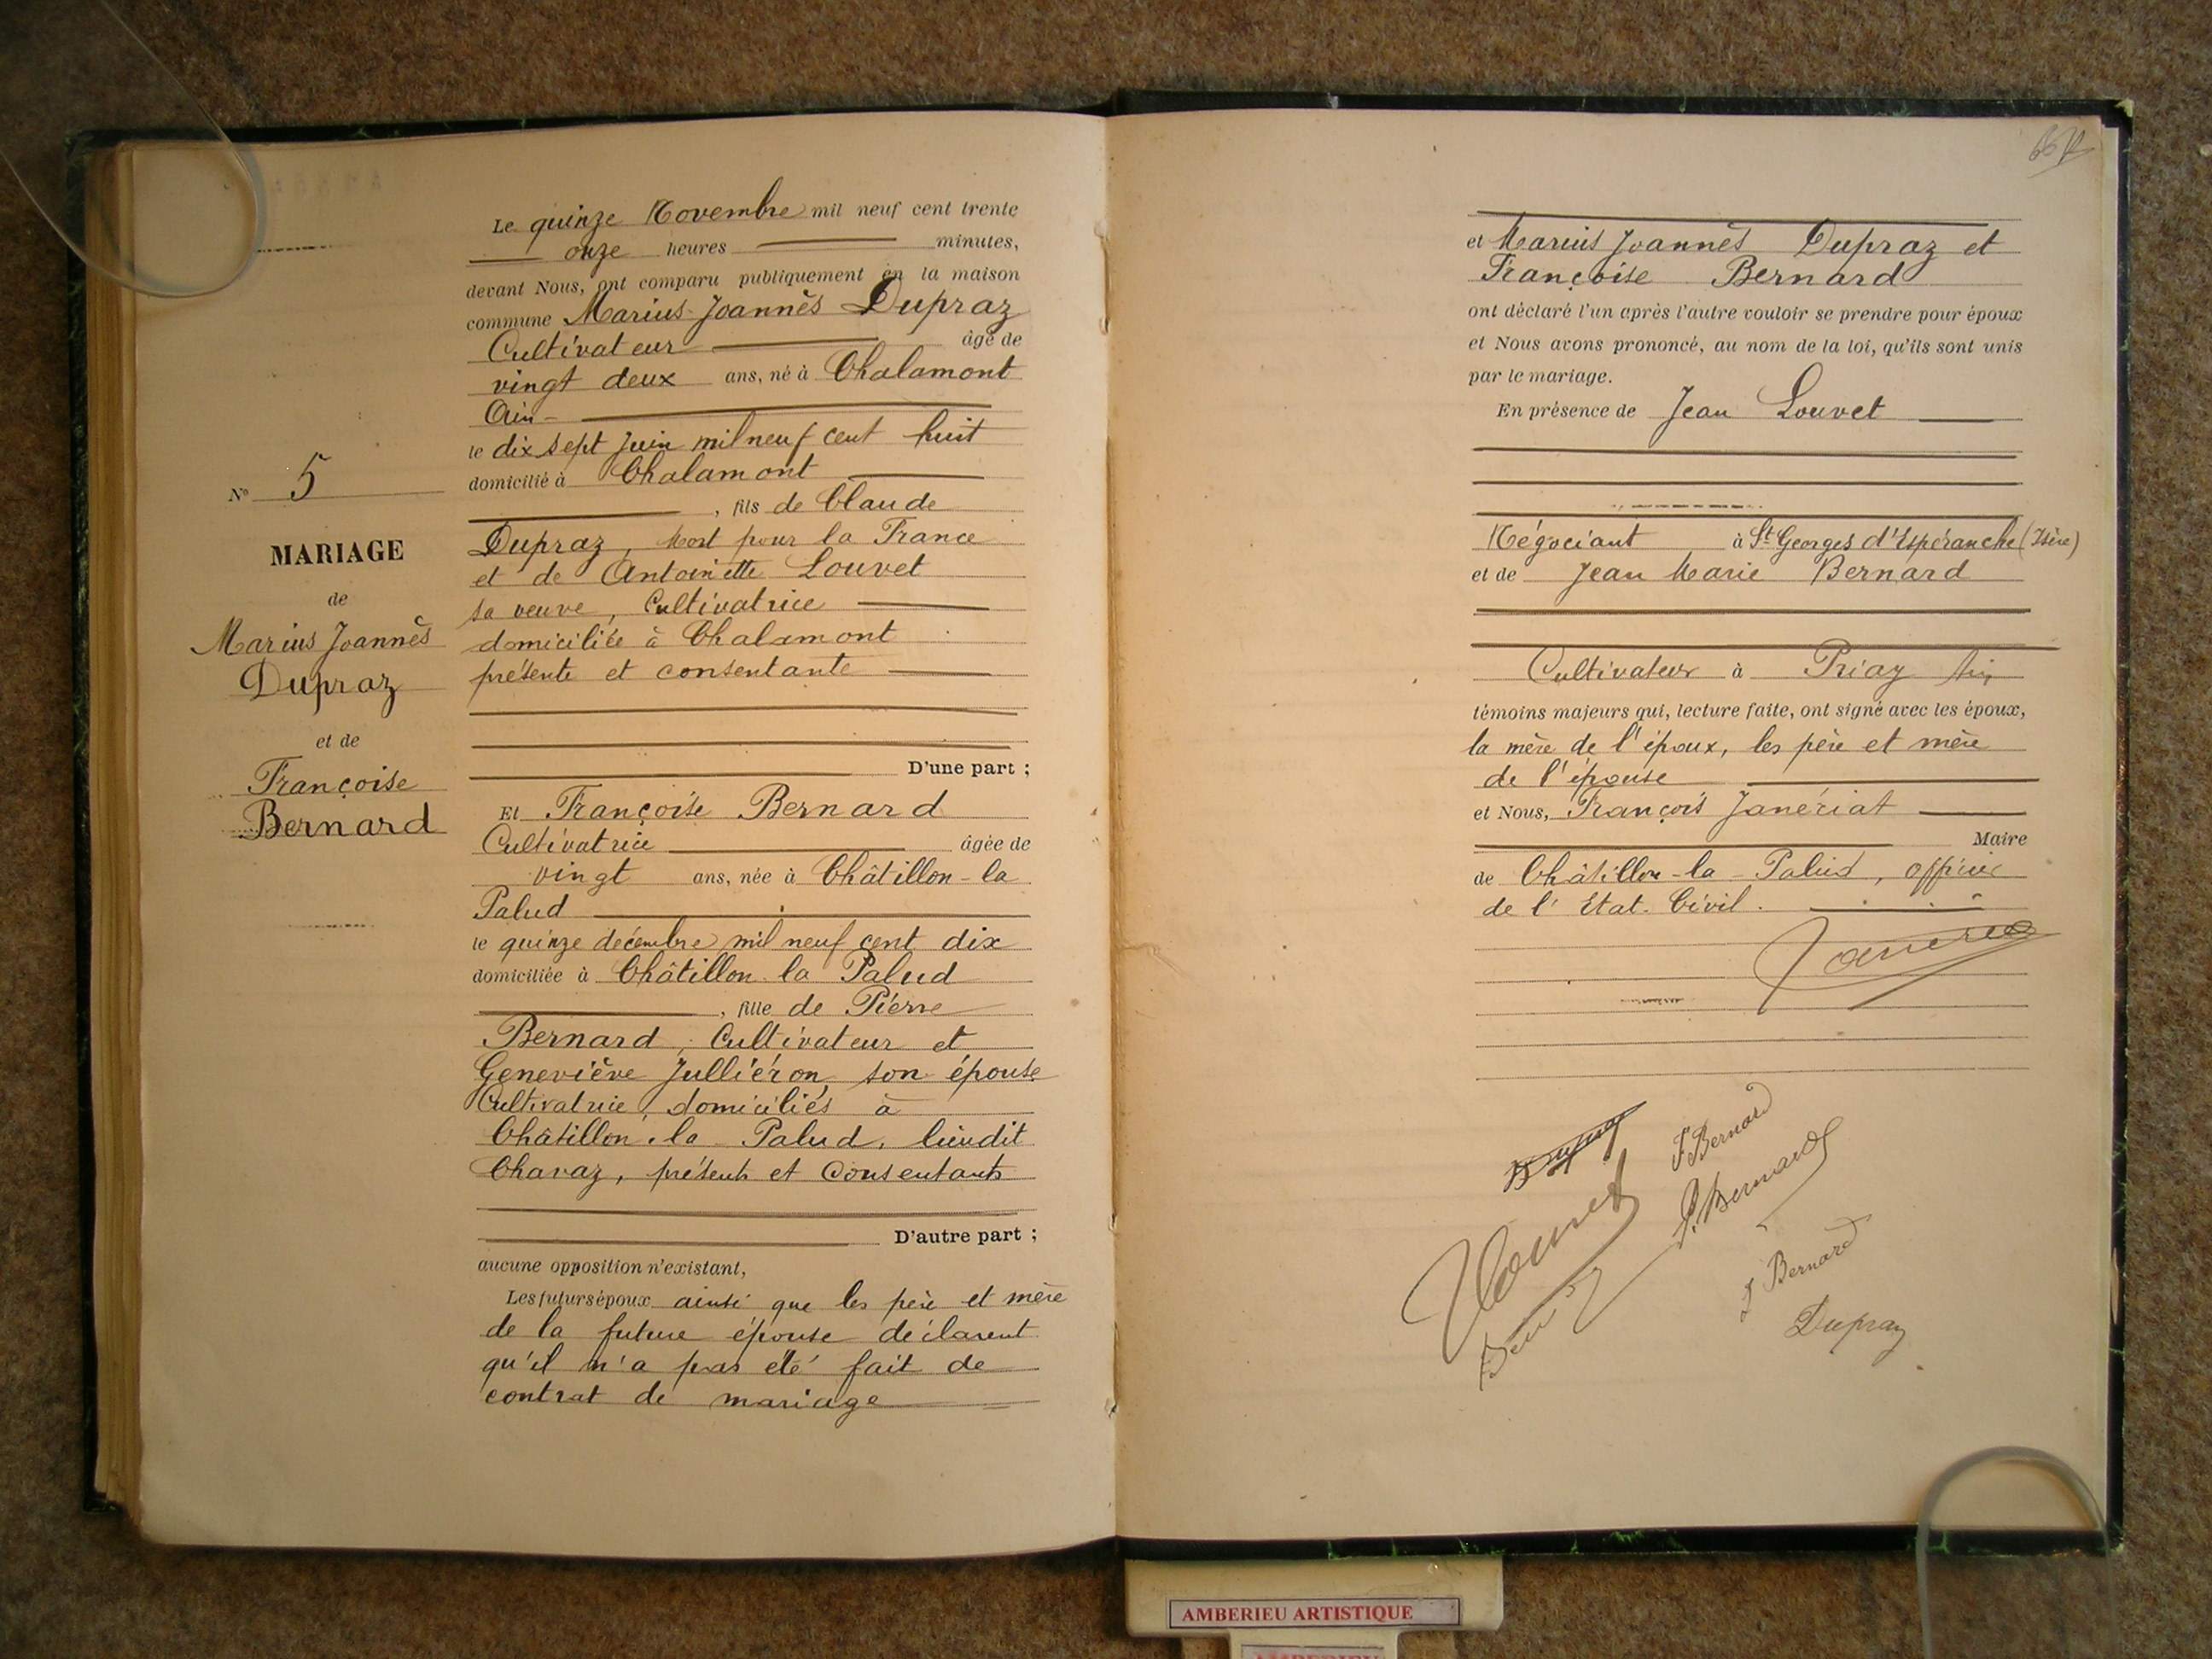 Le quinze Novembre mil neuf cent trente
onze heures minutes,
devant Nous, ont comparu publiquement en la maison
commune Marius Joannès Dupraz
Cultivateur âgé de
vingt deux ans, né à Chalamont
Ain
le dix sept Juin mil neuf cent huit
domicilié à Chalamont
, fils de Claude
Dupraz, Mort pour la France
et de Antoinette Louvet
sa veuve, Cultivatrice
domiciliée à Chalamont
présente et consentante
D'une part ;
Et Françoise Bernard
Cultivatrice âgée de
vingt ans, née à Châtillon-la
Palud
le quinze décembre mil neuf cent dix
domiciliée à Châtillon la Palud
, fille de Pierre
Bernard, Cultivateur et
Geneviève Julliéron, son épouse
Cultivatrice, domiciliés à
Châtillon-la Palud, lieudit
Chavaz, présents et Consentants
D'autre part ;
aucune opposition n'existant,
Les futurs époux ainsi que les père et mère
de la future épouse déclarent
qu'il n'a pas été fait de
contrat de mariage
N° 5
MARIAGE
de
Marius Joannès
Dupraz
et de
Françoise
Bernard
et Marius Joannès Dupraz et
Françoise Bernard
ont déclaré l'un après l'autre vouloir se prendre pour époux
et Nous avons prononcé, au nom de la loi, qu'ils sont unis
par le mariage.
En présence de Jean Louvet
Négociant à St Georges d'Espéranche (Isère)
et de Jean Marie Bernard
Cultivateur à Priay Ain
témoins majeurs qui, lecture faite, ont signé avec les époux,
la mère de l'époux, les père et mère
de l'épouse
et Nous, François Janériat
Maire
de Châtillon-la-Palud, officier
de l'Etat-Civil.
F Bernard
P. Bernard
J Bernard
Dupraz
AMBERIEU ARTISTIQUE